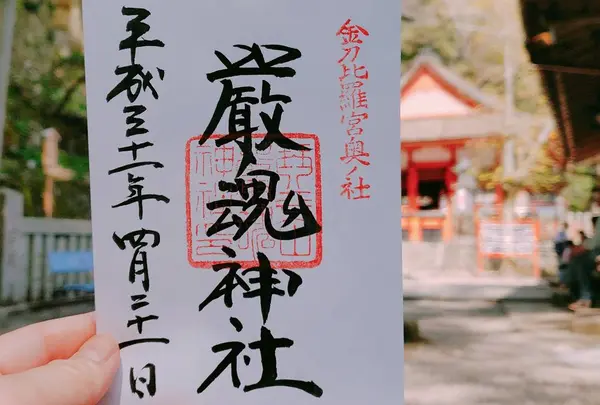 金刀比羅宮奥ノ社
巌魂神社
平成三十一年四月二十一日